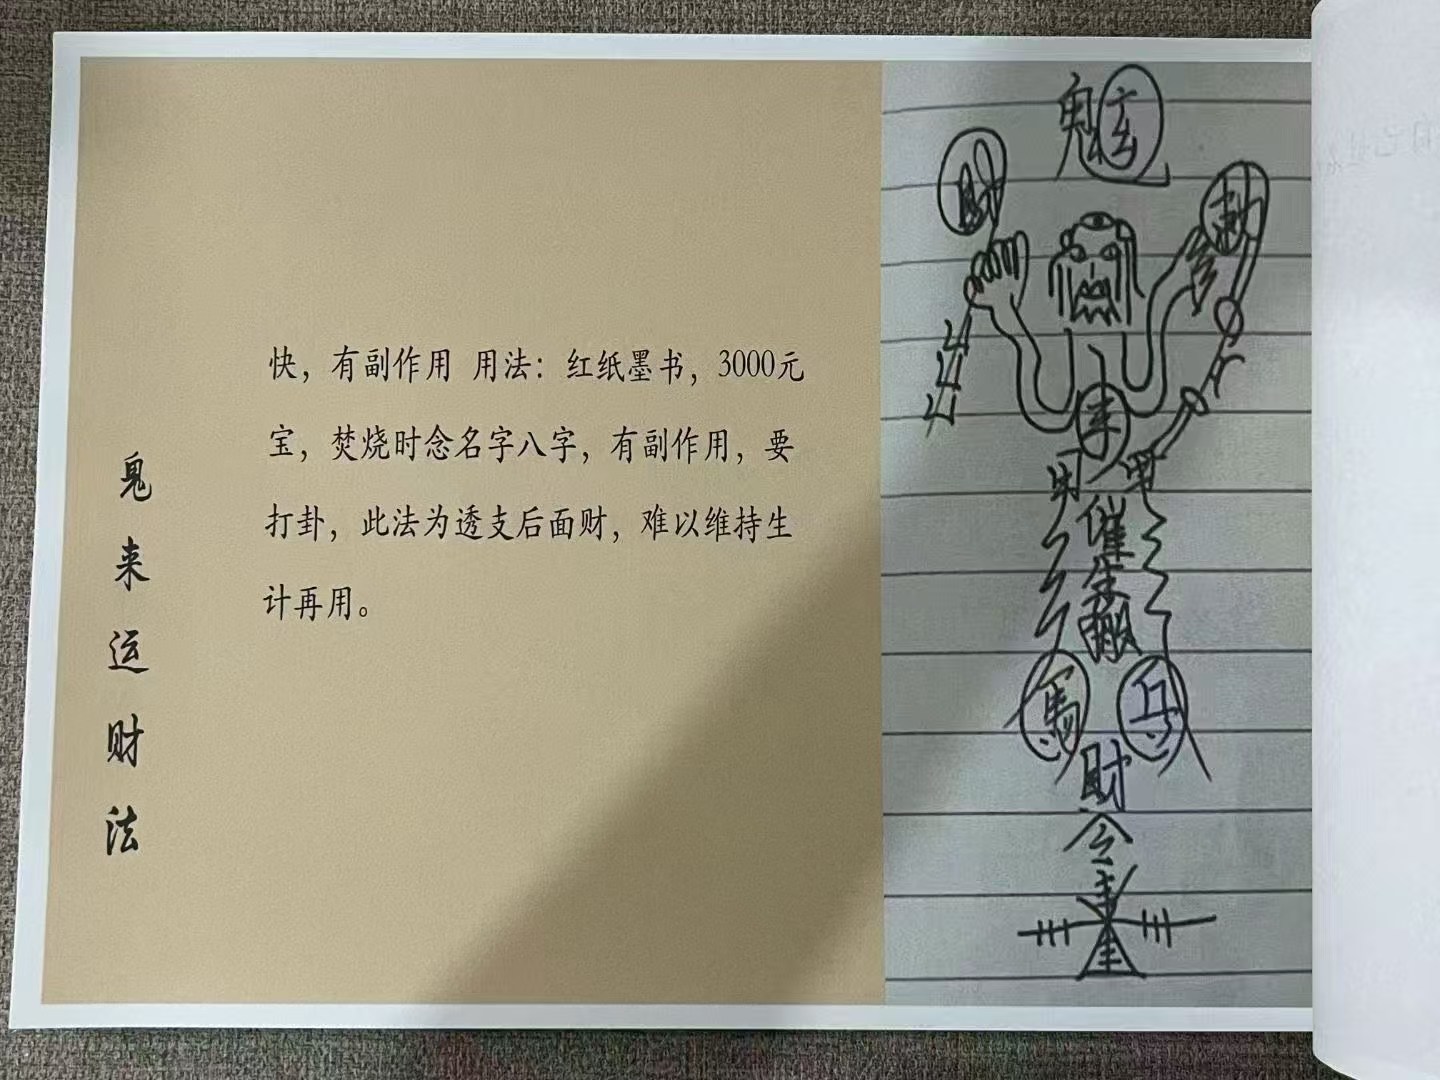 鬼来运财法
快，有副作用 用法：红纸墨书，3000元
宝，焚烧时念名字八字，有副作用，要
打卦，此法为透支后面财，难以维持生
计再用。
财
敕
催
生
搬
馬 兵
财